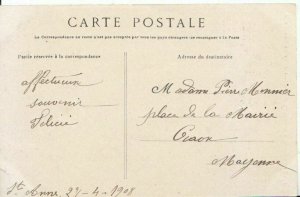 CARTE POSTALE
La Correspondance au recto n'est pas acceptée par tous les pays étrangers (se renseigner à la Poste)
Partie réservée à la correspondance
Adresse du destinataire
affectueux
souvenir
Félicie
Madame Pierre Monnier
place de la Mairie
Craon
Mayenne
Ste Anne 27-4-1908